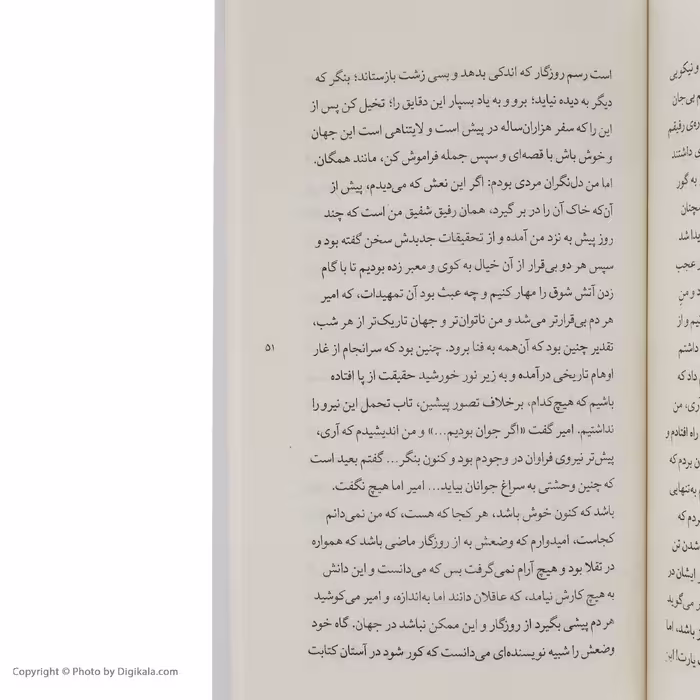 است رسم روزگار که اندکی بدهد و بسی زشت بازستاند؛ بنگر که
دیگر به دیده نیاید؛ برو و به یاد بسپار این دقایق را؛ تخیل کن پس از
این را که سفر هزاران‌ساله در پیش است و لایتناهی است این جهان
و خوش باش با قصه‌ای و سپس جمله فراموش کن، مانند همگان.
اما من دل‌نگران مردی بودم: اگر این نعش که می‌دیدم، پیش از
آن‌که خاک آن را در بر گیرد، همان رفیق شفیق من است که چند
روز پیش به نزد من آمده و از تحقیقات جدیدش سخن گفته بود و
سپس هر دو بی‌قرار از آن خیال به کوی و معبر زده بودیم تا با گام
زدن آتش شوق را مهار کنیم و چه عبث بود آن تمهیدات، که امیر
هر دم بی‌قرارتر می‌شد و من ناتوان‌تر و جهان تاریک‌تر از هر شب،
تقدیر چنین بود که آن‌همه به فنا برود. چنین بود که سرانجام از غار
اوهام تاریخی درآمده و به زیر نور خورشید حقیقت از پا افتاده
باشیم که هیچ‌کدام، برخلاف تصور پیشین، تاب تحمل این نیرو را
نداشتیم. امیر گفت «اگر جوان بودیم...» و من اندیشیدم که آری،
پیش‌تر نیروی فراوان در وجودم بود و کنون بنگر... گفتم بعید است
که چنین وحشتی به سراغ جوانان بیاید... امیر اما هیچ نگفت.
باشد که کنون خوش باشد، هر کجا که هست، که من نمی‌دانم
کجاست، امیدوارم که وضعش به از روزگار ماضی باشد که همواره
در تقلا بود و هیچ آرام نمی‌گرفت بس که می‌دانست و این دانش
به هیچ کارش نیامد، که عاقلان دانند اما به‌اندازه، و امیر می‌کوشید
هر دم پیشی بگیرد از روزگار و این ممکن نباشد در جهان. گاه خود
وضعش را شبیه نویسنده‌ای می‌دانست که کور شود در آستان کتابت
۵۱
و نیکویی
م بی‌جان
ره‌ی رفیقم
ی داشتند
به گور
مچنان
یدا شد
ر عجب
د و من
نیم و از
داشتم
م داد که
آری، من
راه افتادم و
ن بردم که
م به‌تنهایی
ردم که
شدن تن
ر ایشان در
ر می‌گوید
ر باشد، اما
Copyright © Photo by Digikala.com